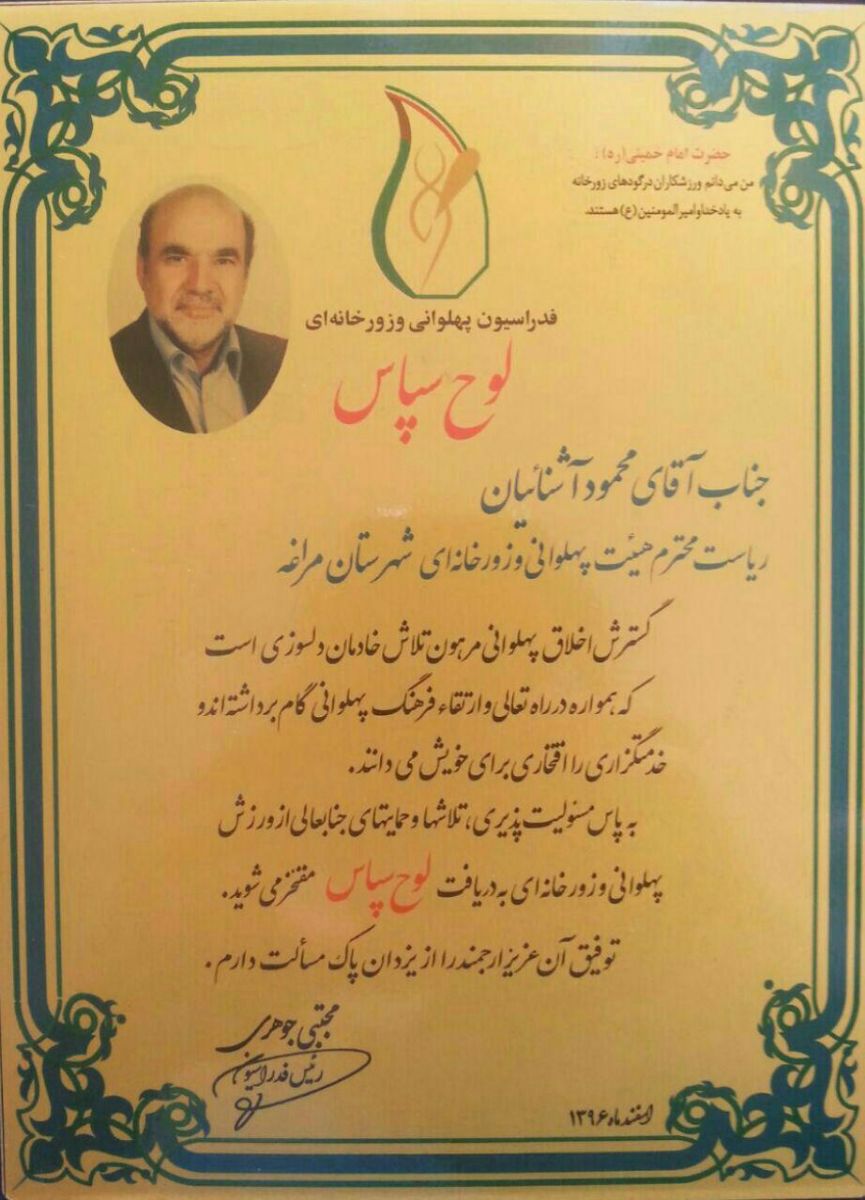 حضرت امام خمینی(ره):
من می‌دانم ورزشکاران درگودهای زورخانه
به یادخداوامیرالمومنین(ع)هستند.
فدراسیون پهلوانی وزورخانه‌ای
لوح سپاس
جناب آقای محمود آشنائیان
ریاست محترم هیئت پهلوانی وزورخانه‌ای شهرستان مراغه
گسترش اخلاق پهلوانی مرهون تلاش خادمان دلسوزی است
که همواره درراه تعالی وارتقاء فرهنگ پهلوانی گام برداشته اندو
خدمتگزاری را افتخاری برای خویش می دانند.
به پاس مسئولیت پذیری، تلاشها وحمایتهای جنابعالی از ورزش
پهلوانی وزورخانه‌ای به دریافت لوح سپاس مفتخر می شوید.
توفیق آن عزیز ارجمند را از یزدان پاک مسألت دارم.
مجتبی جوهری
رئیس فدراسیون
اسفند ماه ۱۳۹۶